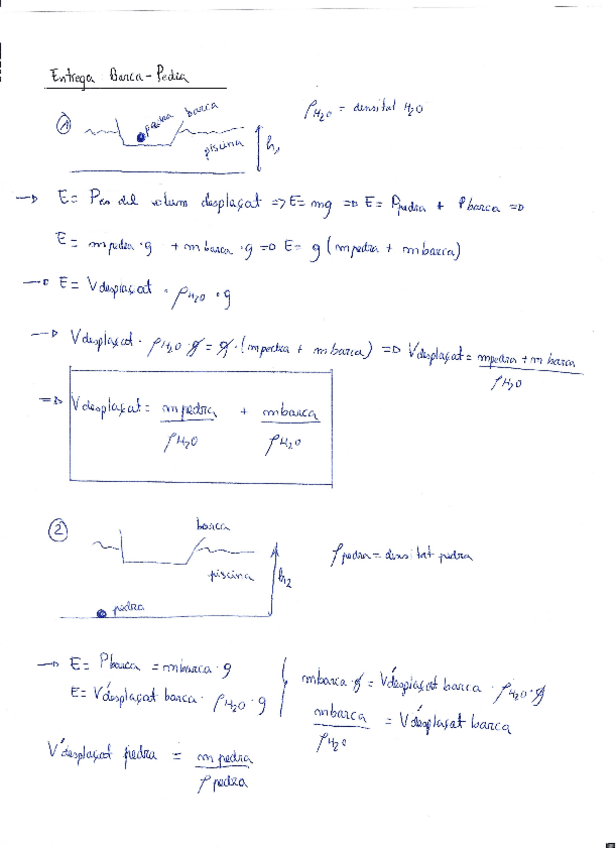 Entrega Barca-Pedra
ρH₂O = densitat H₂O
① pedra barca
piscina h₁
→ E = Pes del volum desplaçat => E = mg => E = Ppedra + Pbarca =>
E = mpedra · g + mbarca · g => E = g (mpedra + mbarca)
→ E = Vdesplaçat · ρH₂O · g
→ Vdesplaçat · ρH₂O · g = g · (mpedra + mbarca) => Vdesplaçat = mpedra + mbarca / ρH₂O
=> Vdesplaçat = mpedra / ρH₂O + mbarca / ρH₂O
② barca
ρpedra = densitat pedra
piscina h₂
pedra
→ E = Pbarca = mbarca · g
E = V'desplaçat barca · ρH₂O · g
mbarca · g = V'desplaçat barca · ρH₂O · g
mbarca / ρH₂O = V'desplaçat barca
V'desplaçat pedra = mpedra / ρpedra